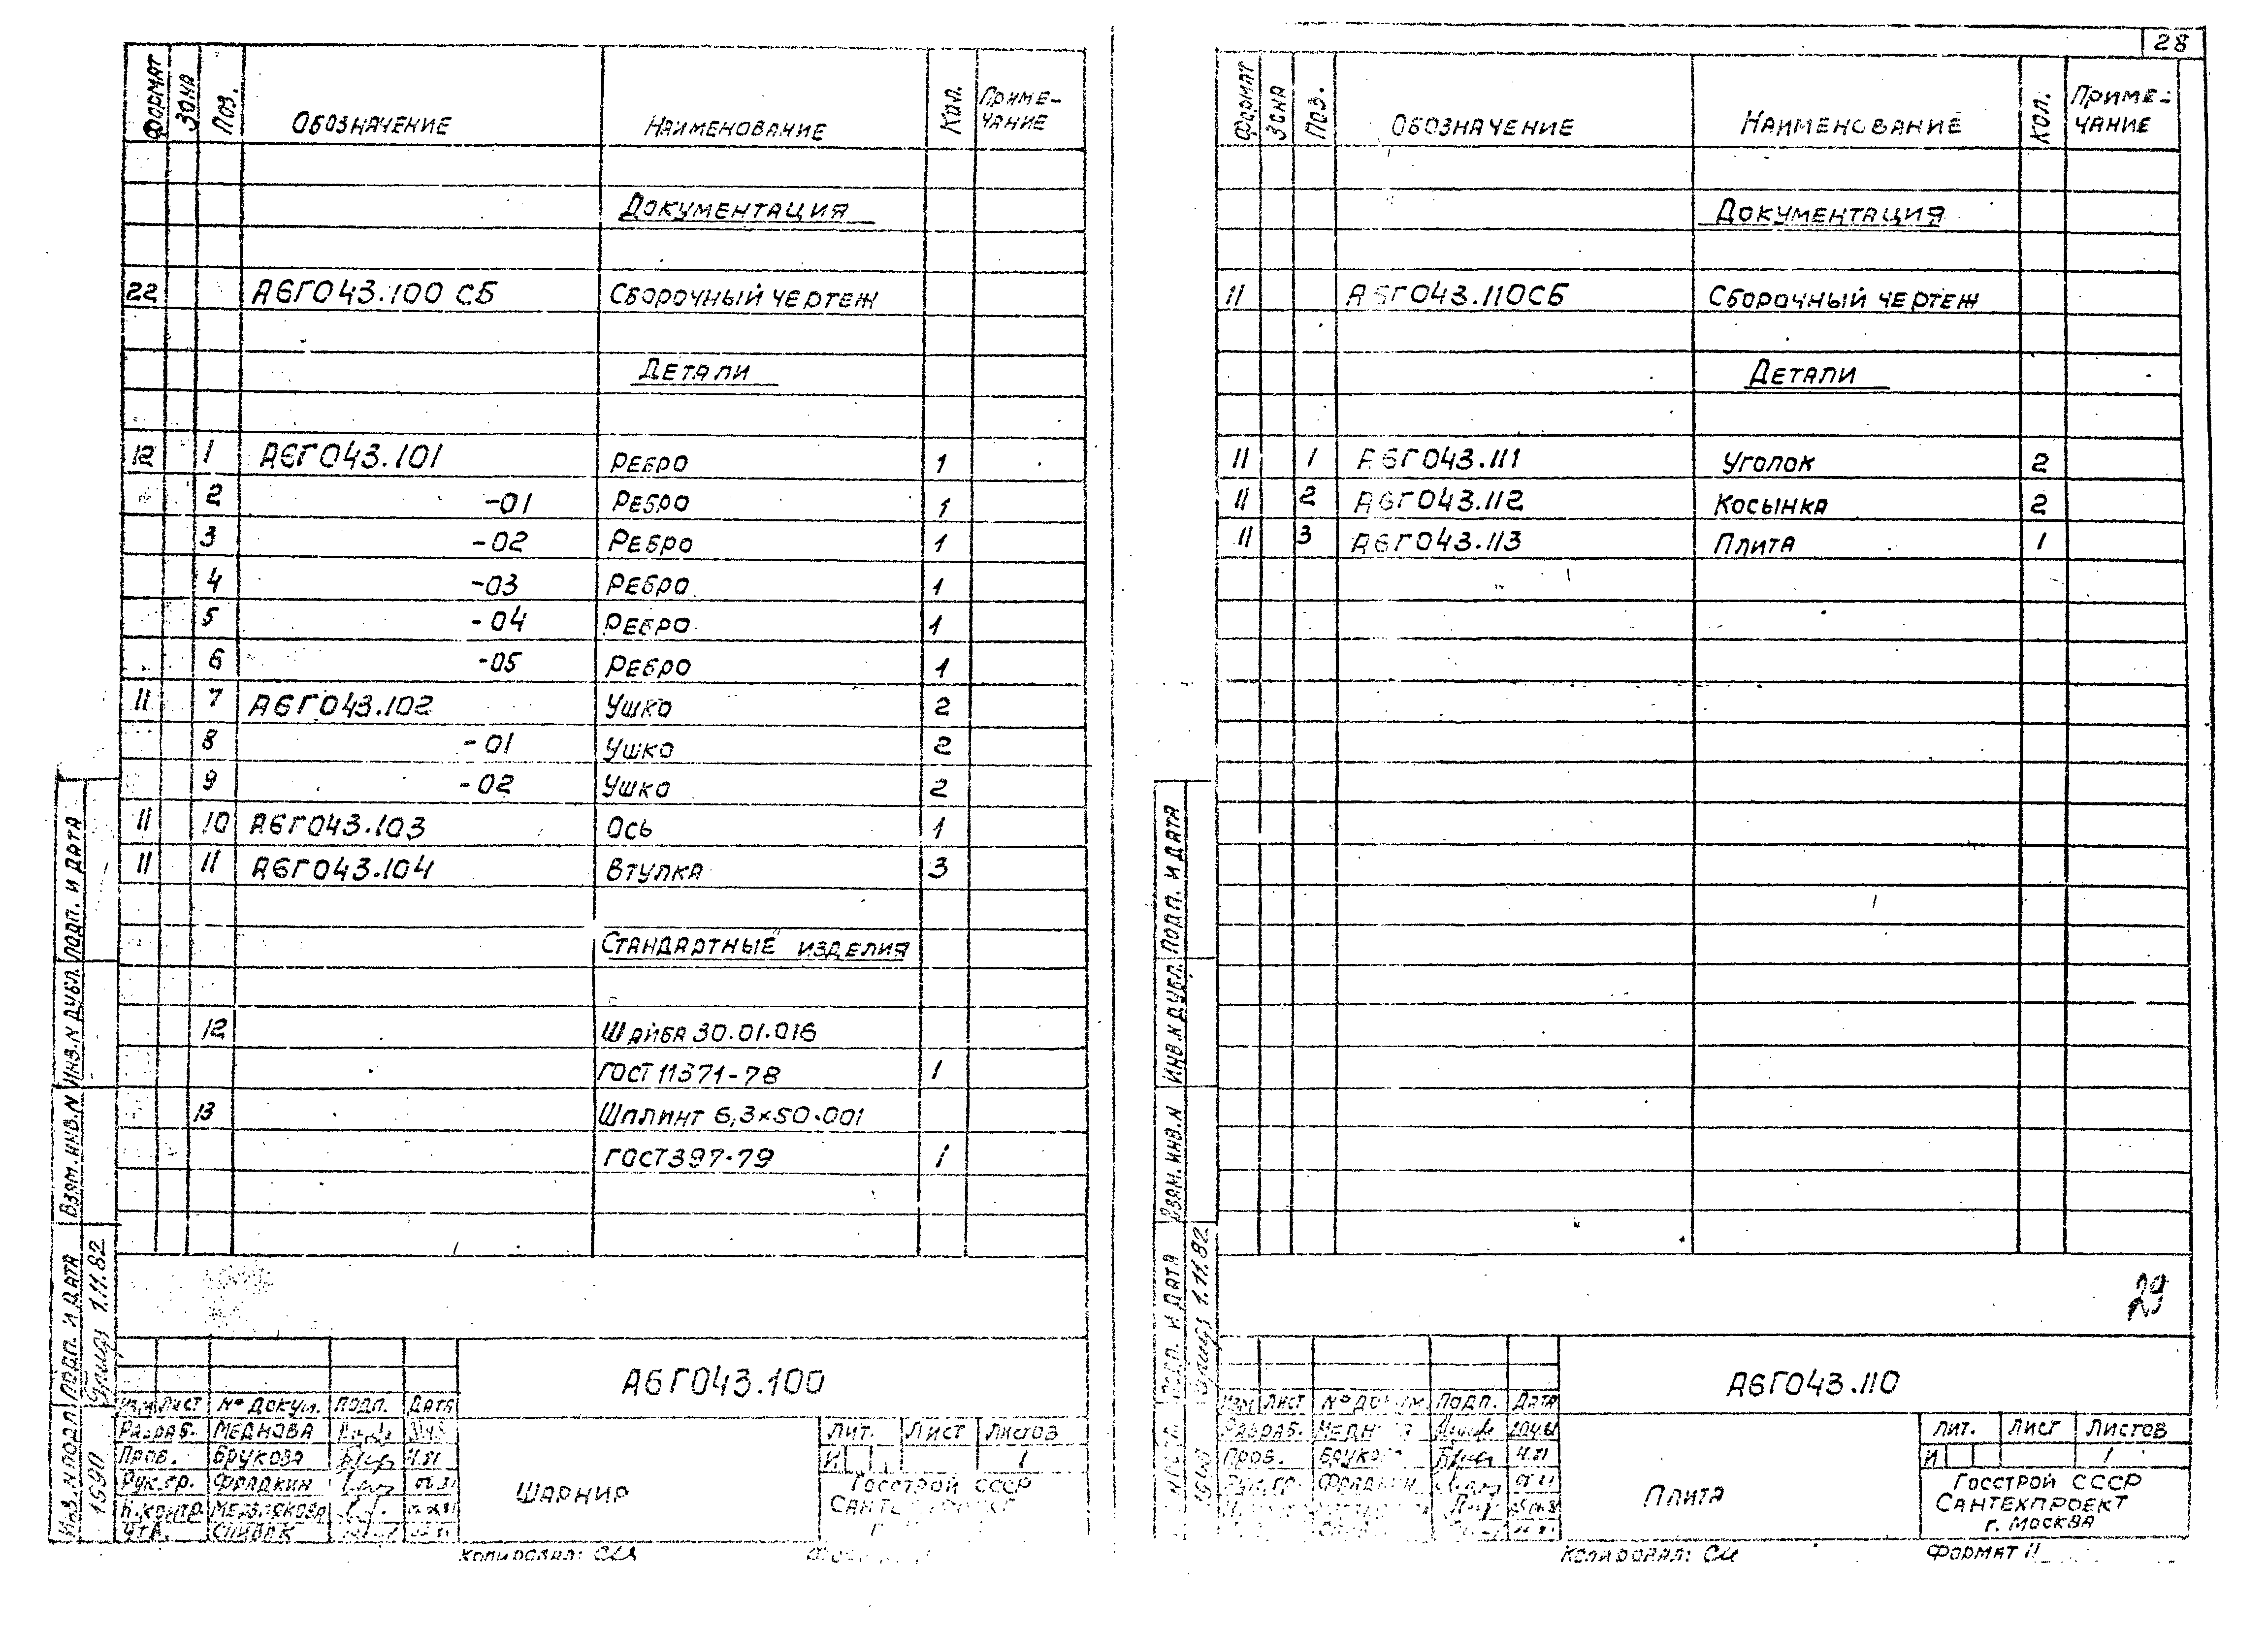 ФОРМАТ ЗОНА ПОЗ. ОБОЗНАЧЕНИЕ НАИМЕНОВАНИЕ КОЛ. ПРИМЕ-ЧАНИЕ
ДОКУМЕНТАЦИЯ
22 А6Г043.100 СБ СБОРОЧНЫЙ ЧЕРТЕЖ
ДЕТАЛИ
12 1 А6Г043.101 РЕБРО 1
2 -01 РЕБРО 1
3 -02 РЕБРО 1
4 -03 РЕБРО 1
5 -04 РЕБРО 1
6 -05 РЕБРО 1
11 7 А6Г043.102 УШКО 2
8 -01 УШКО 2
9 -02 УШКО 2
11 10 А6Г043.103 ОСЬ 1
11 11 А6Г043.104 ВТУЛКА 3
СТАНДАРТНЫЕ ИЗДЕЛИЯ
12 ШАЙБА 30.01.016
ГОСТ 11371-78 1
13 ШПЛИНТ 6,3×50.001
ГОСТ 397-79 1
ИНВ.N ПОДЛ ПОДП. И ДАТА ВЗАМ.ИНВ.N ИНВ.N ДУБЛ. ПОДП. И ДАТА
1590 1.11.82
А6Г043.100
ИЗМ ЛИСТ № ДОКУМ. ПОДП. ДАТА
РАЗРАБ. МЕДНОВА
ПРОВ. БРУКОВА
РУК.ГР. ФРАДКИН
Н.КОНТР МЕРЗЛЯКОВА
УТВ. СПИВАК
ШАРНИР
ЛИТ. ЛИСТ ЛИСТОВ
И 1
ГОССТРОЙ СССР
КОПИРОВАЛ:
28
ФОРМАТ ЗОНА ПОЗ. ОБОЗНАЧЕНИЕ НАИМЕНОВАНИЕ КОЛ. ПРИМЕ-ЧАНИЕ
ДОКУМЕНТАЦИЯ
11 А6Г043.110СБ СБОРОЧНЫЙ ЧЕРТЕЖ
ДЕТАЛИ
11 1 А6Г043.111 УГОЛОК 2
11 2 А6Г043.112 КОСЫНКА 2
11 3 А6Г043.113 ПЛИТА 1
ПОДП. И ДАТА ВЗАМ.ИНВ.N ИНВ.N ДУБЛ. ПОДП. И ДАТА
1.11.82
29
А6Г043.110
ИЗМ ЛИСТ ПОДП. ДАТА
РАЗРАБ.
ПРОВ.
ПЛИТА
ЛИТ. ЛИСТ ЛИСТОВ
И 1
ГОССТРОЙ СССР
САНТЕХПРОЕКТ
г. МОСКВА
КОПИРОВАЛ:
ФОРМАТ 11